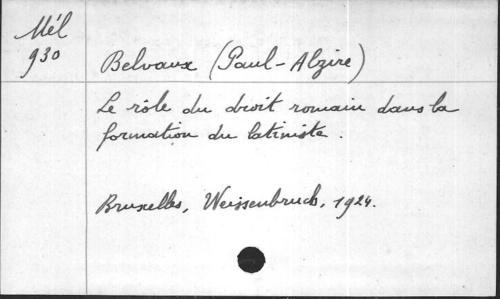 Mél
930
Belvaux (Paul-Alzire)
Le rôle du droit romain dans la
formation du latiniste.
Bruxelles, Weissenbruch, 1924.